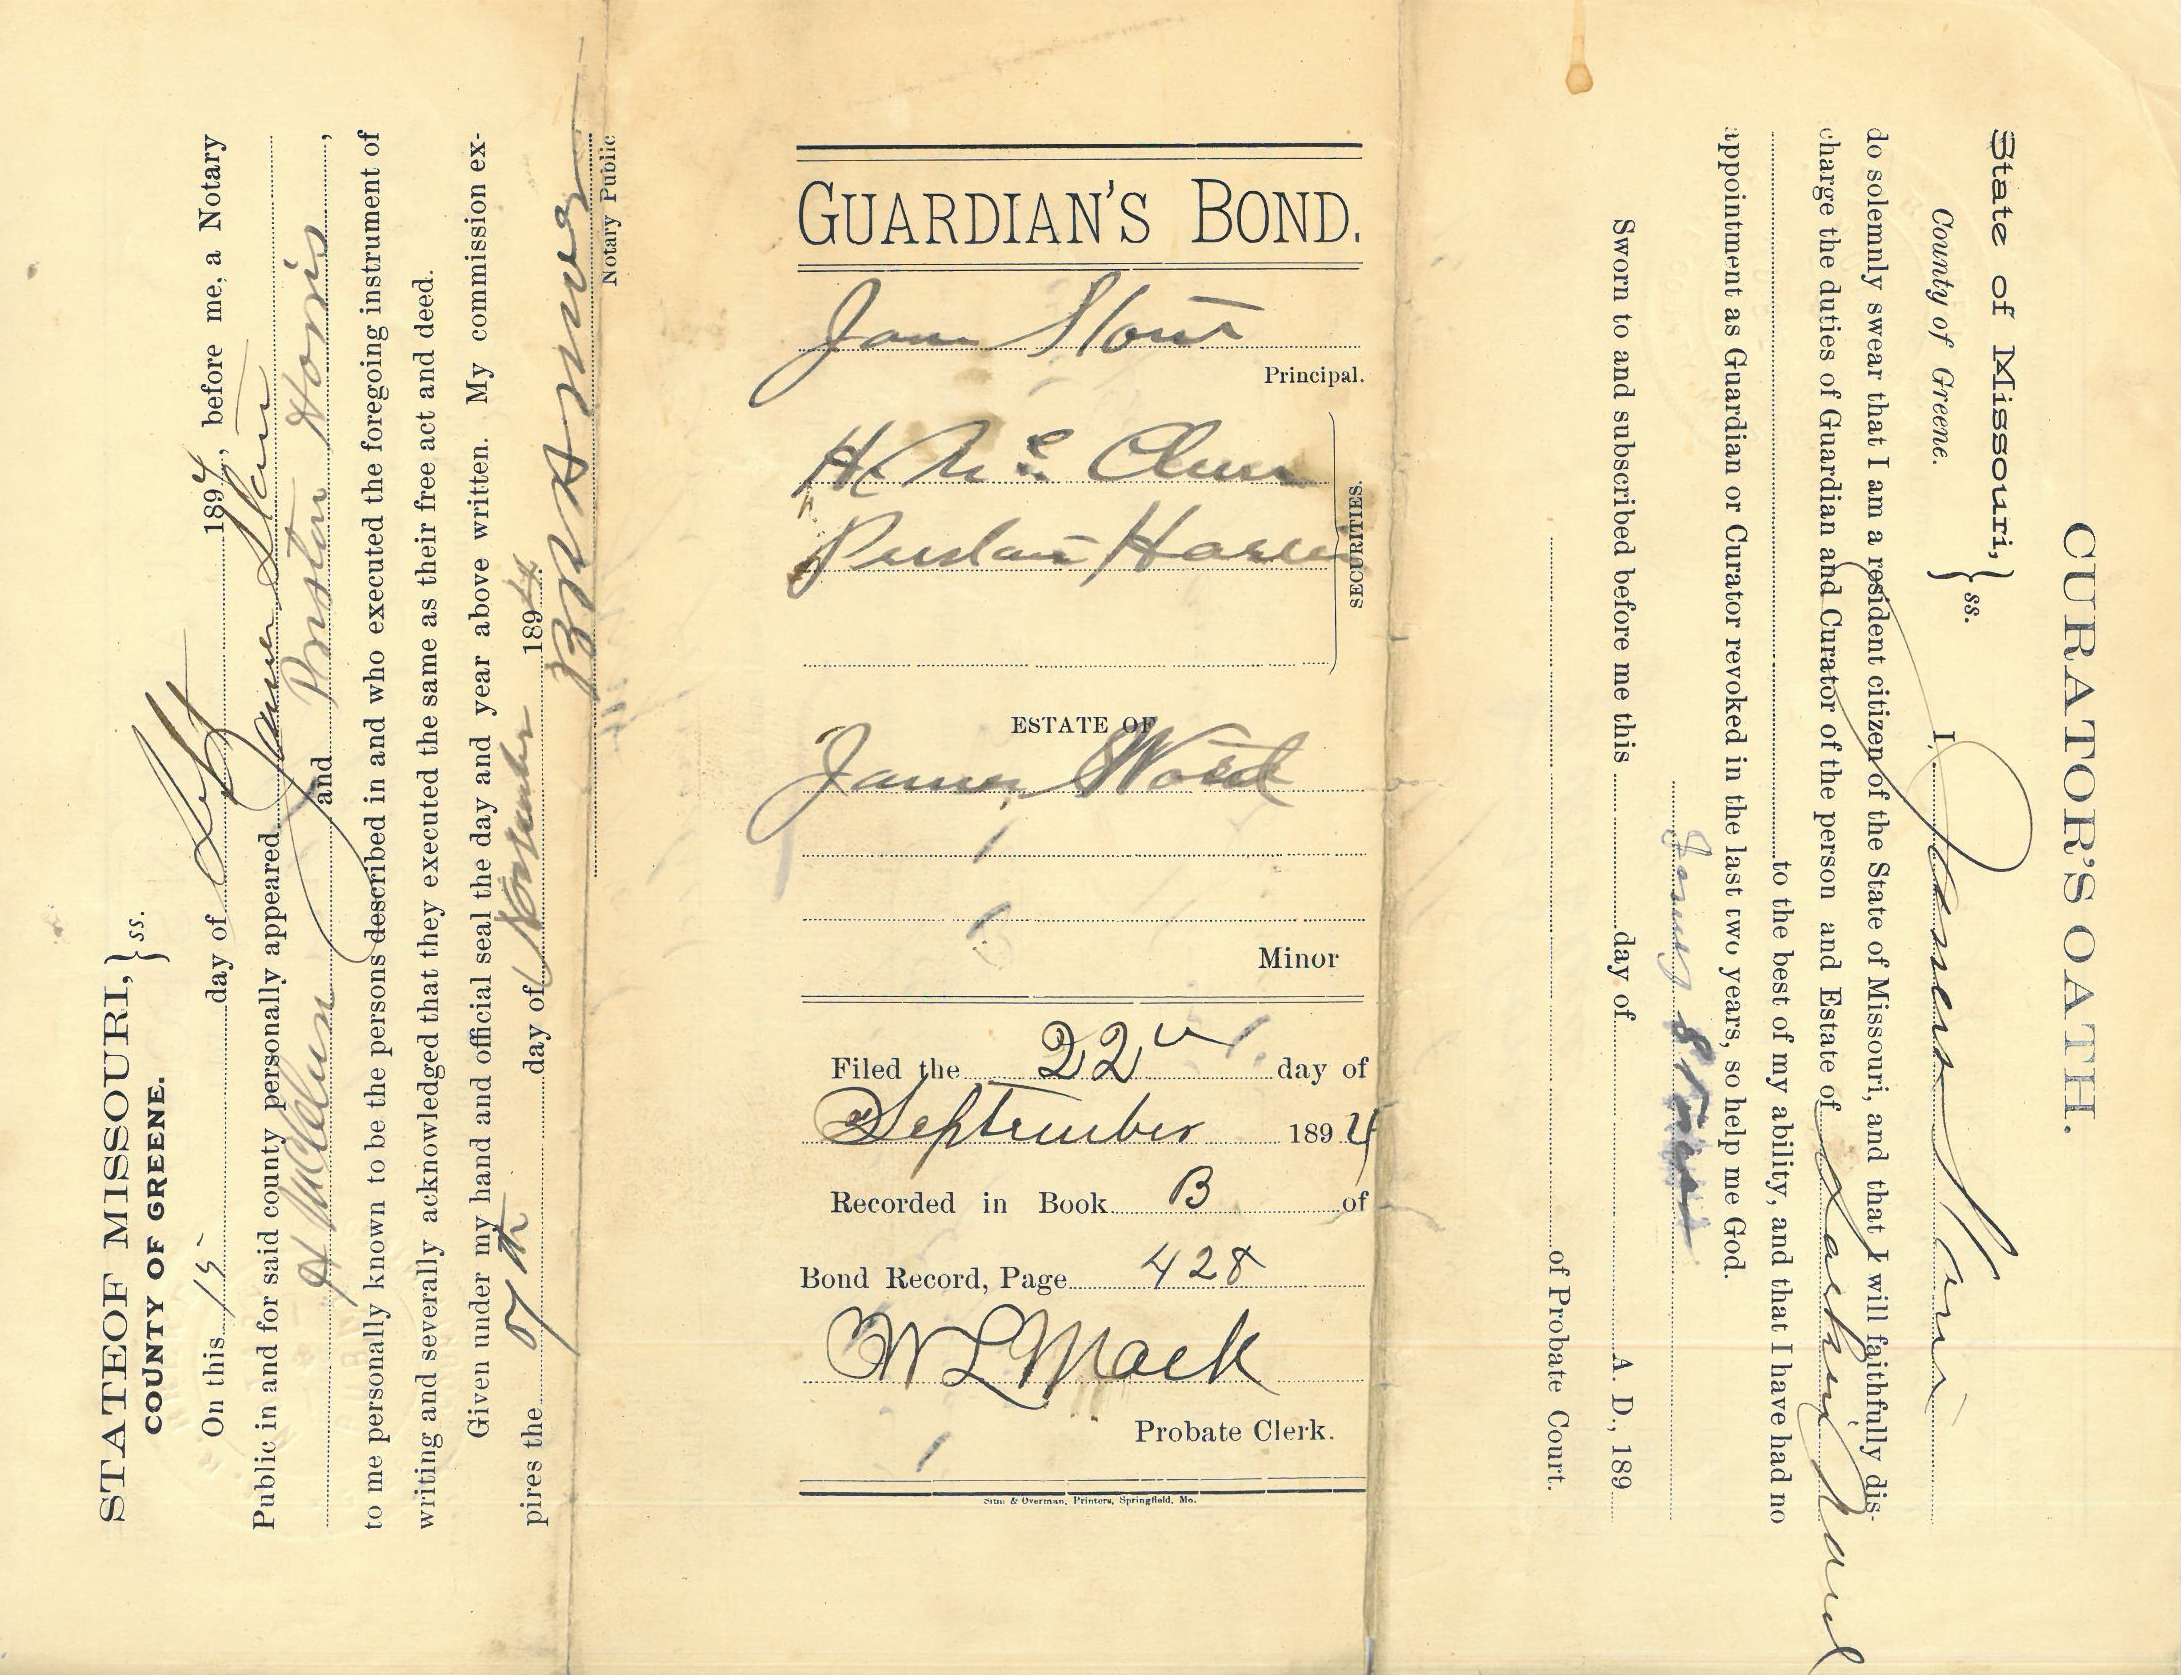 STATE OF MISSOURI, } ss.
COUNTY OF GREENE.
On this 15 day of Sept 1894, before me, a Notary
Public in and for said county personally appeared James
H McClure and Preston
to me personally known to be the persons described in and who executed the foregoing instrument of
writing and severally acknowledged that they executed the same as their free act and deed.
Given under my hand and official seal the day and year above written. My commission ex-
pires the 7th day of November 189
Notary Public
GUARDIAN'S BOND.
Principal.
H. Mc Clure
SECURITIES.
ESTATE OF
James
Minor
Filed the 22 day of
September 1894
Recorded in Book B of
Bond Record, Page 428
W L Mack
Probate Clerk.
& Overman, Printers, Springfield, Mo.
CURATOR'S OATH.
State of Missouri, } ss.
County of Greene.
I, James
do solemnly swear that I am a resident citizen of the State of Missouri, and that I will faithfully dis-
charge the duties of Guardian and Curator of the person and Estate of
to the best of my ability, and that I have had no
appointment as Guardian or Curator revoked in the last two years, so help me God.
Sworn to and subscribed before me this day of A. D., 189
of Probate Court.